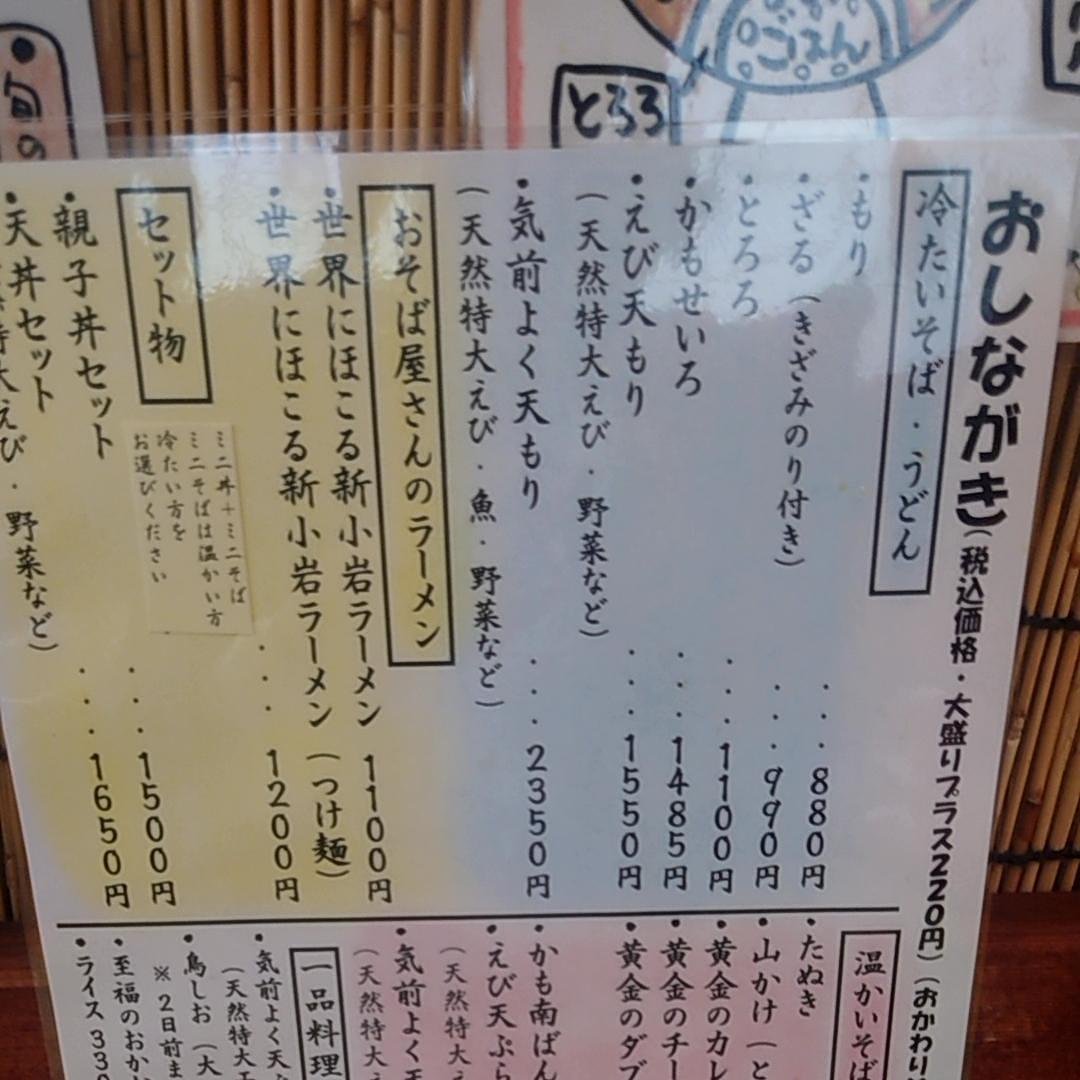 旬の
ごはん
とろろ
おしながき(税込価格・大盛りプラス220円)(おかわり
冷たいそば・うどん
・もり・・・880円
・ざる(きざみのり付き)・・・990円
・とろろ・・・1100円
・かもせいろ・・・1485円
・えび天もり・・・1550円
(天然特大えび・野菜など)
・気前よく天もり・・・2350円
(天然特大えび・魚・野菜など)
おそば屋さんのラーメン
・世界にほこる新小岩ラーメン 1100円
・世界にほこる新小岩ラーメン(つけ麺)
・・・1200円
セット物
ミニ丼+ミニそば
ミニそばは温かい方
冷たい方を
お選びください
・親子丼セット・・・1500円
・天丼セット・・・1650円
特大えび・野菜など)
温かいそば
・たぬき
・山かけ(と
・黄金のカレ
・黄金のチー
・黄金のダブ
・かも南ばん
・えび天ぷら
(天然特大
・気前よく天
(天然特大え
一品料理
・気前よく天
(天然特大
・鳥しお(大
※2日前ま
・至福のおか
・ライス330